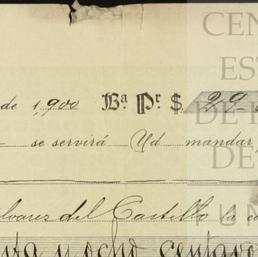 de 1,900 Bª Pr. $ 29
se servirá Ud mandar
lvarez del Castillo la c
va y ocho centavo
CEN
EST
DE
U
DE
L